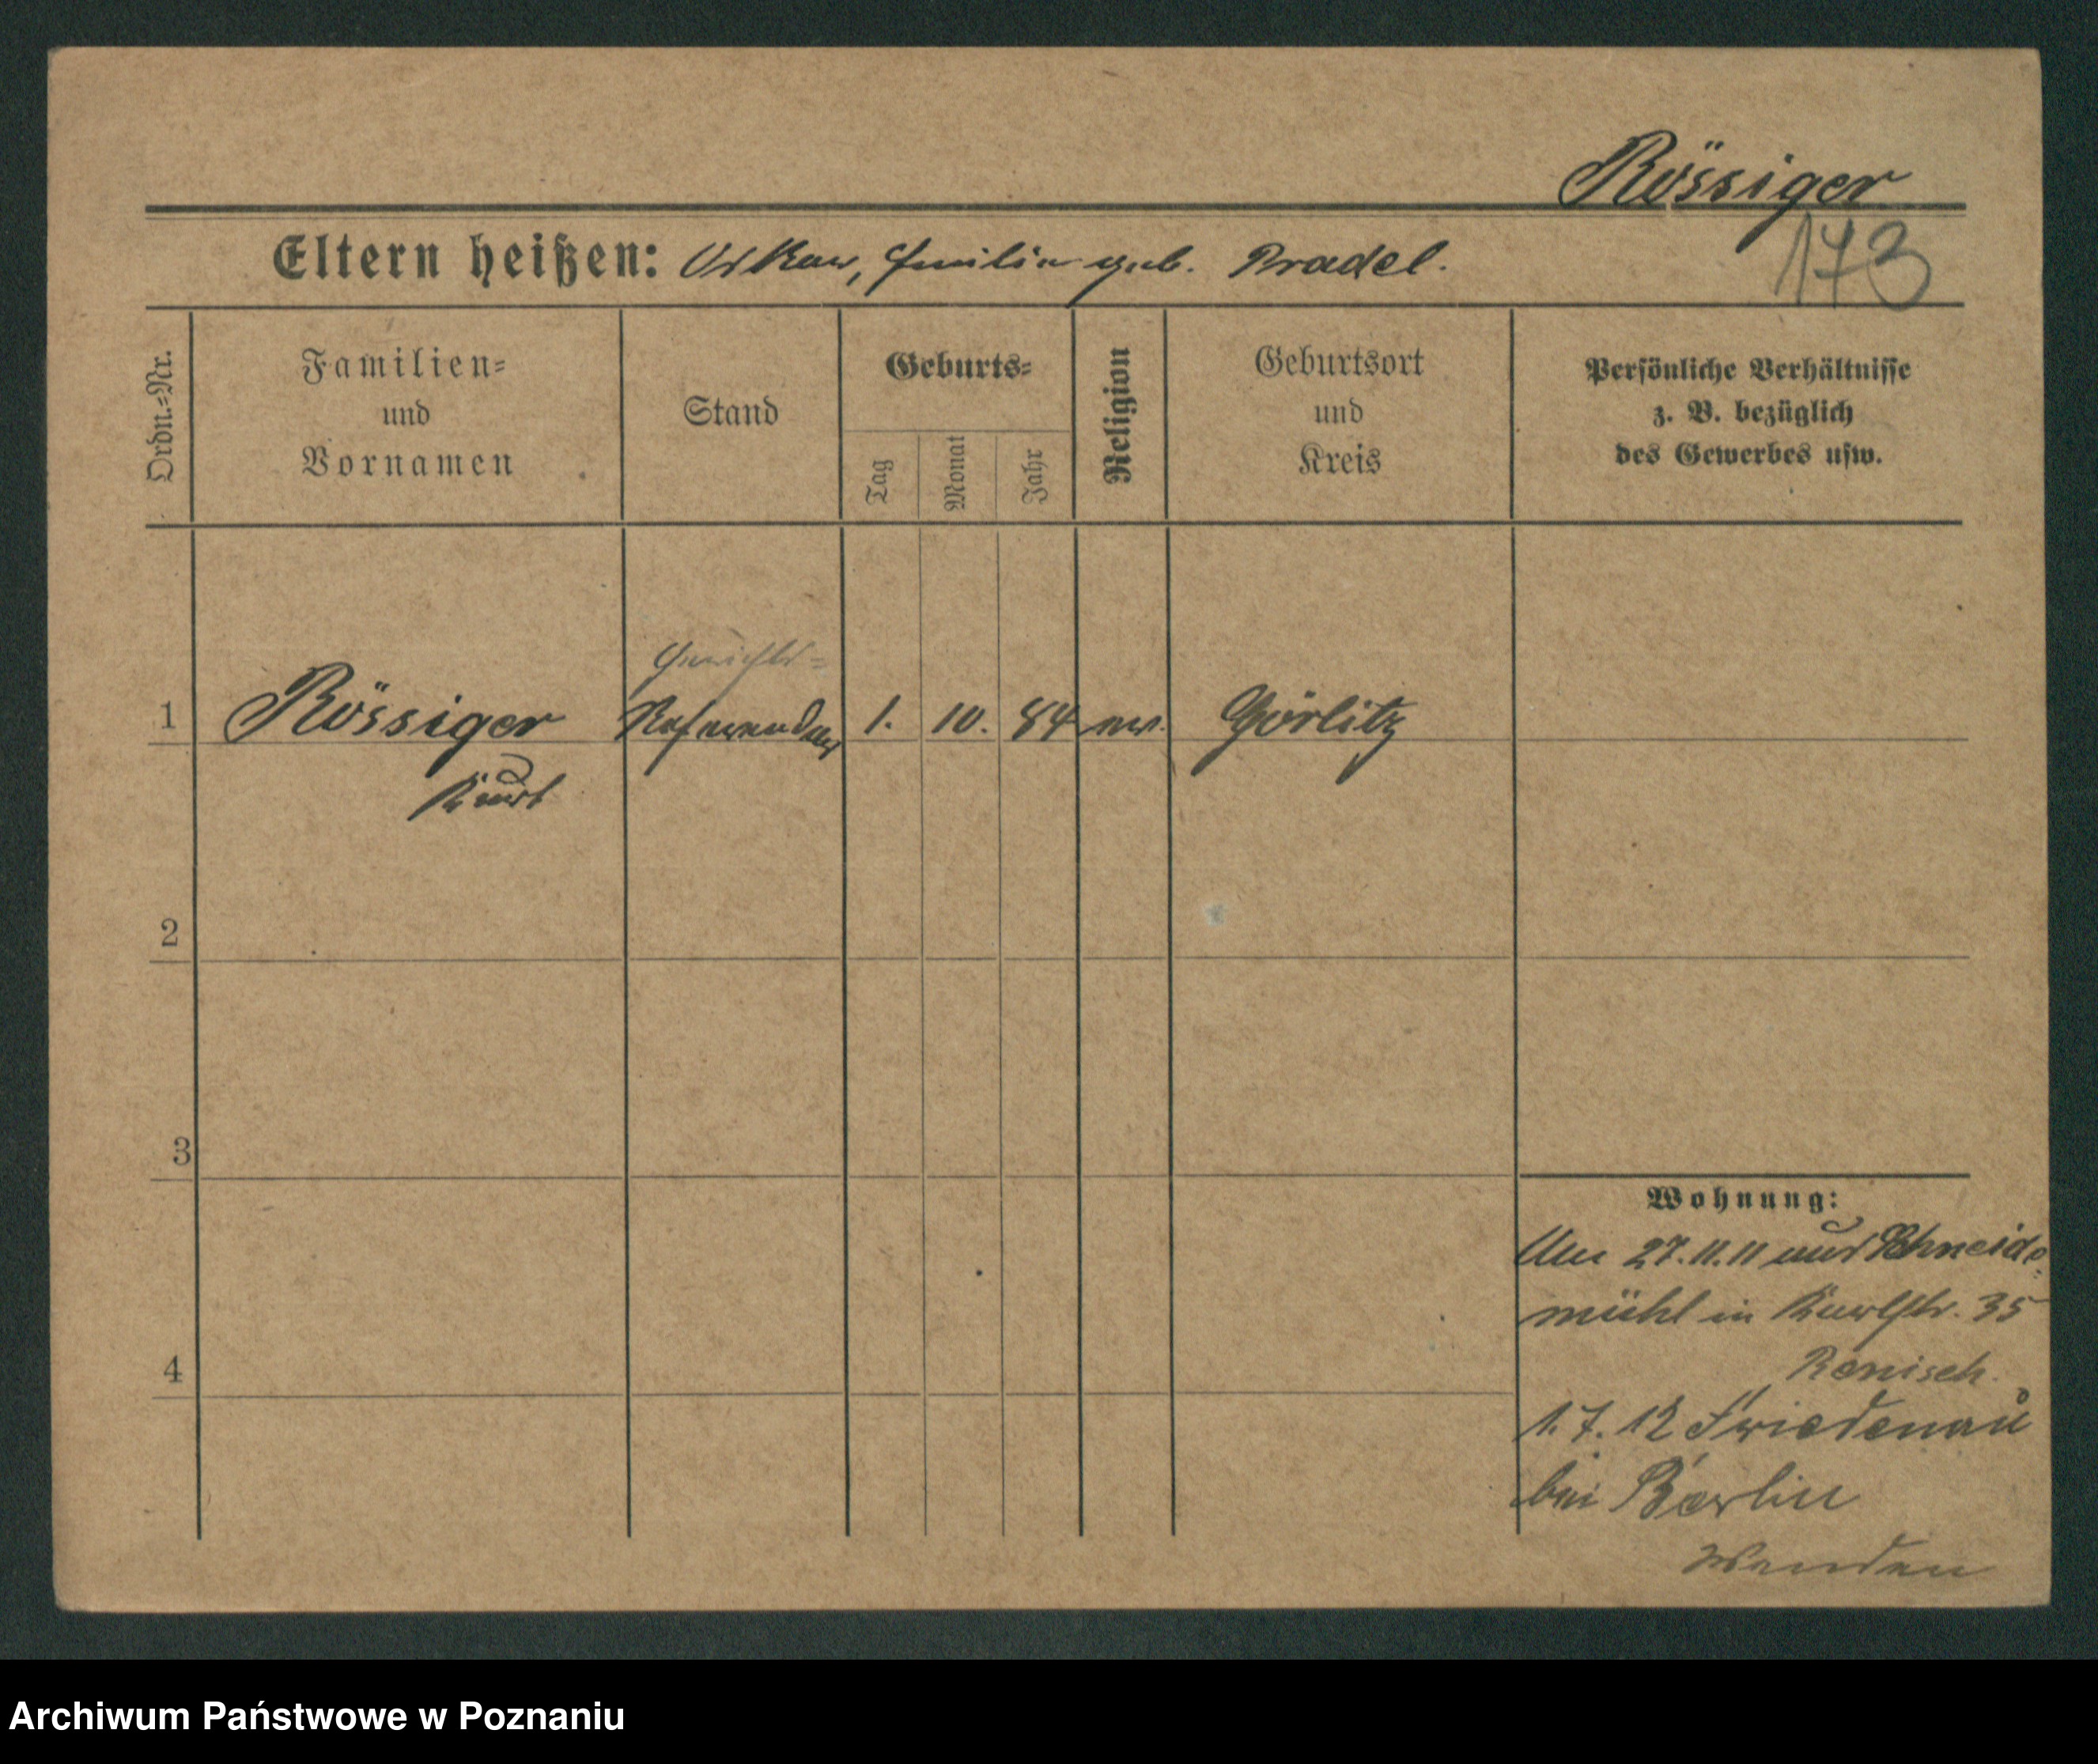 Rössiger
173
Eltern heißen: Oskar, Emilie geb. Bradel.
Ordn.=Nr.
Familien=
und
Vornamen
Stand
Geburts=
Tag
Monat
Jahr
Religion
Geburtsort
und
Kreis
Persönliche Verhältnisse
z. B. bezüglich
des Gewerbes usw.
Gerichts=
1 Rössiger Referendar 1. 10. 84 ev. Görlitz
Kurt
2
3
4
Wohnung:
Am 27.11.11 aus Schneide=
mühl in Karlstr. 35
Renisch.
1.7.12 Friedenau
bei Berlin
Wenden
Archiwum Państwowe w Poznaniu